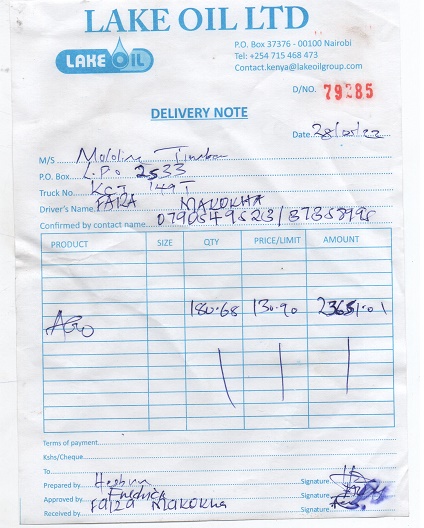 LAKE OIL LTD
LAKE OIL
P.O. Box 37376 - 00100 Nairobi
Tel: +254 715 468 473
Contact.kenya@lakeoilgroup.com
D/NO. 79285
DELIVERY NOTE
Date 28/05/22
M/S
P.O. Box L.P.O 2533
Truck No.
Driver's Name MAKOKHA
Confirmed by contact name
PRODUCT SIZE QTY PRICE/LIMIT AMOUNT
AGO 180.68 130.90 23651.01
Terms of payment
Kshs/Cheque
To
Prepared by Signature
Approved by Fredrick Signature
Received by MAKOKHA Signature